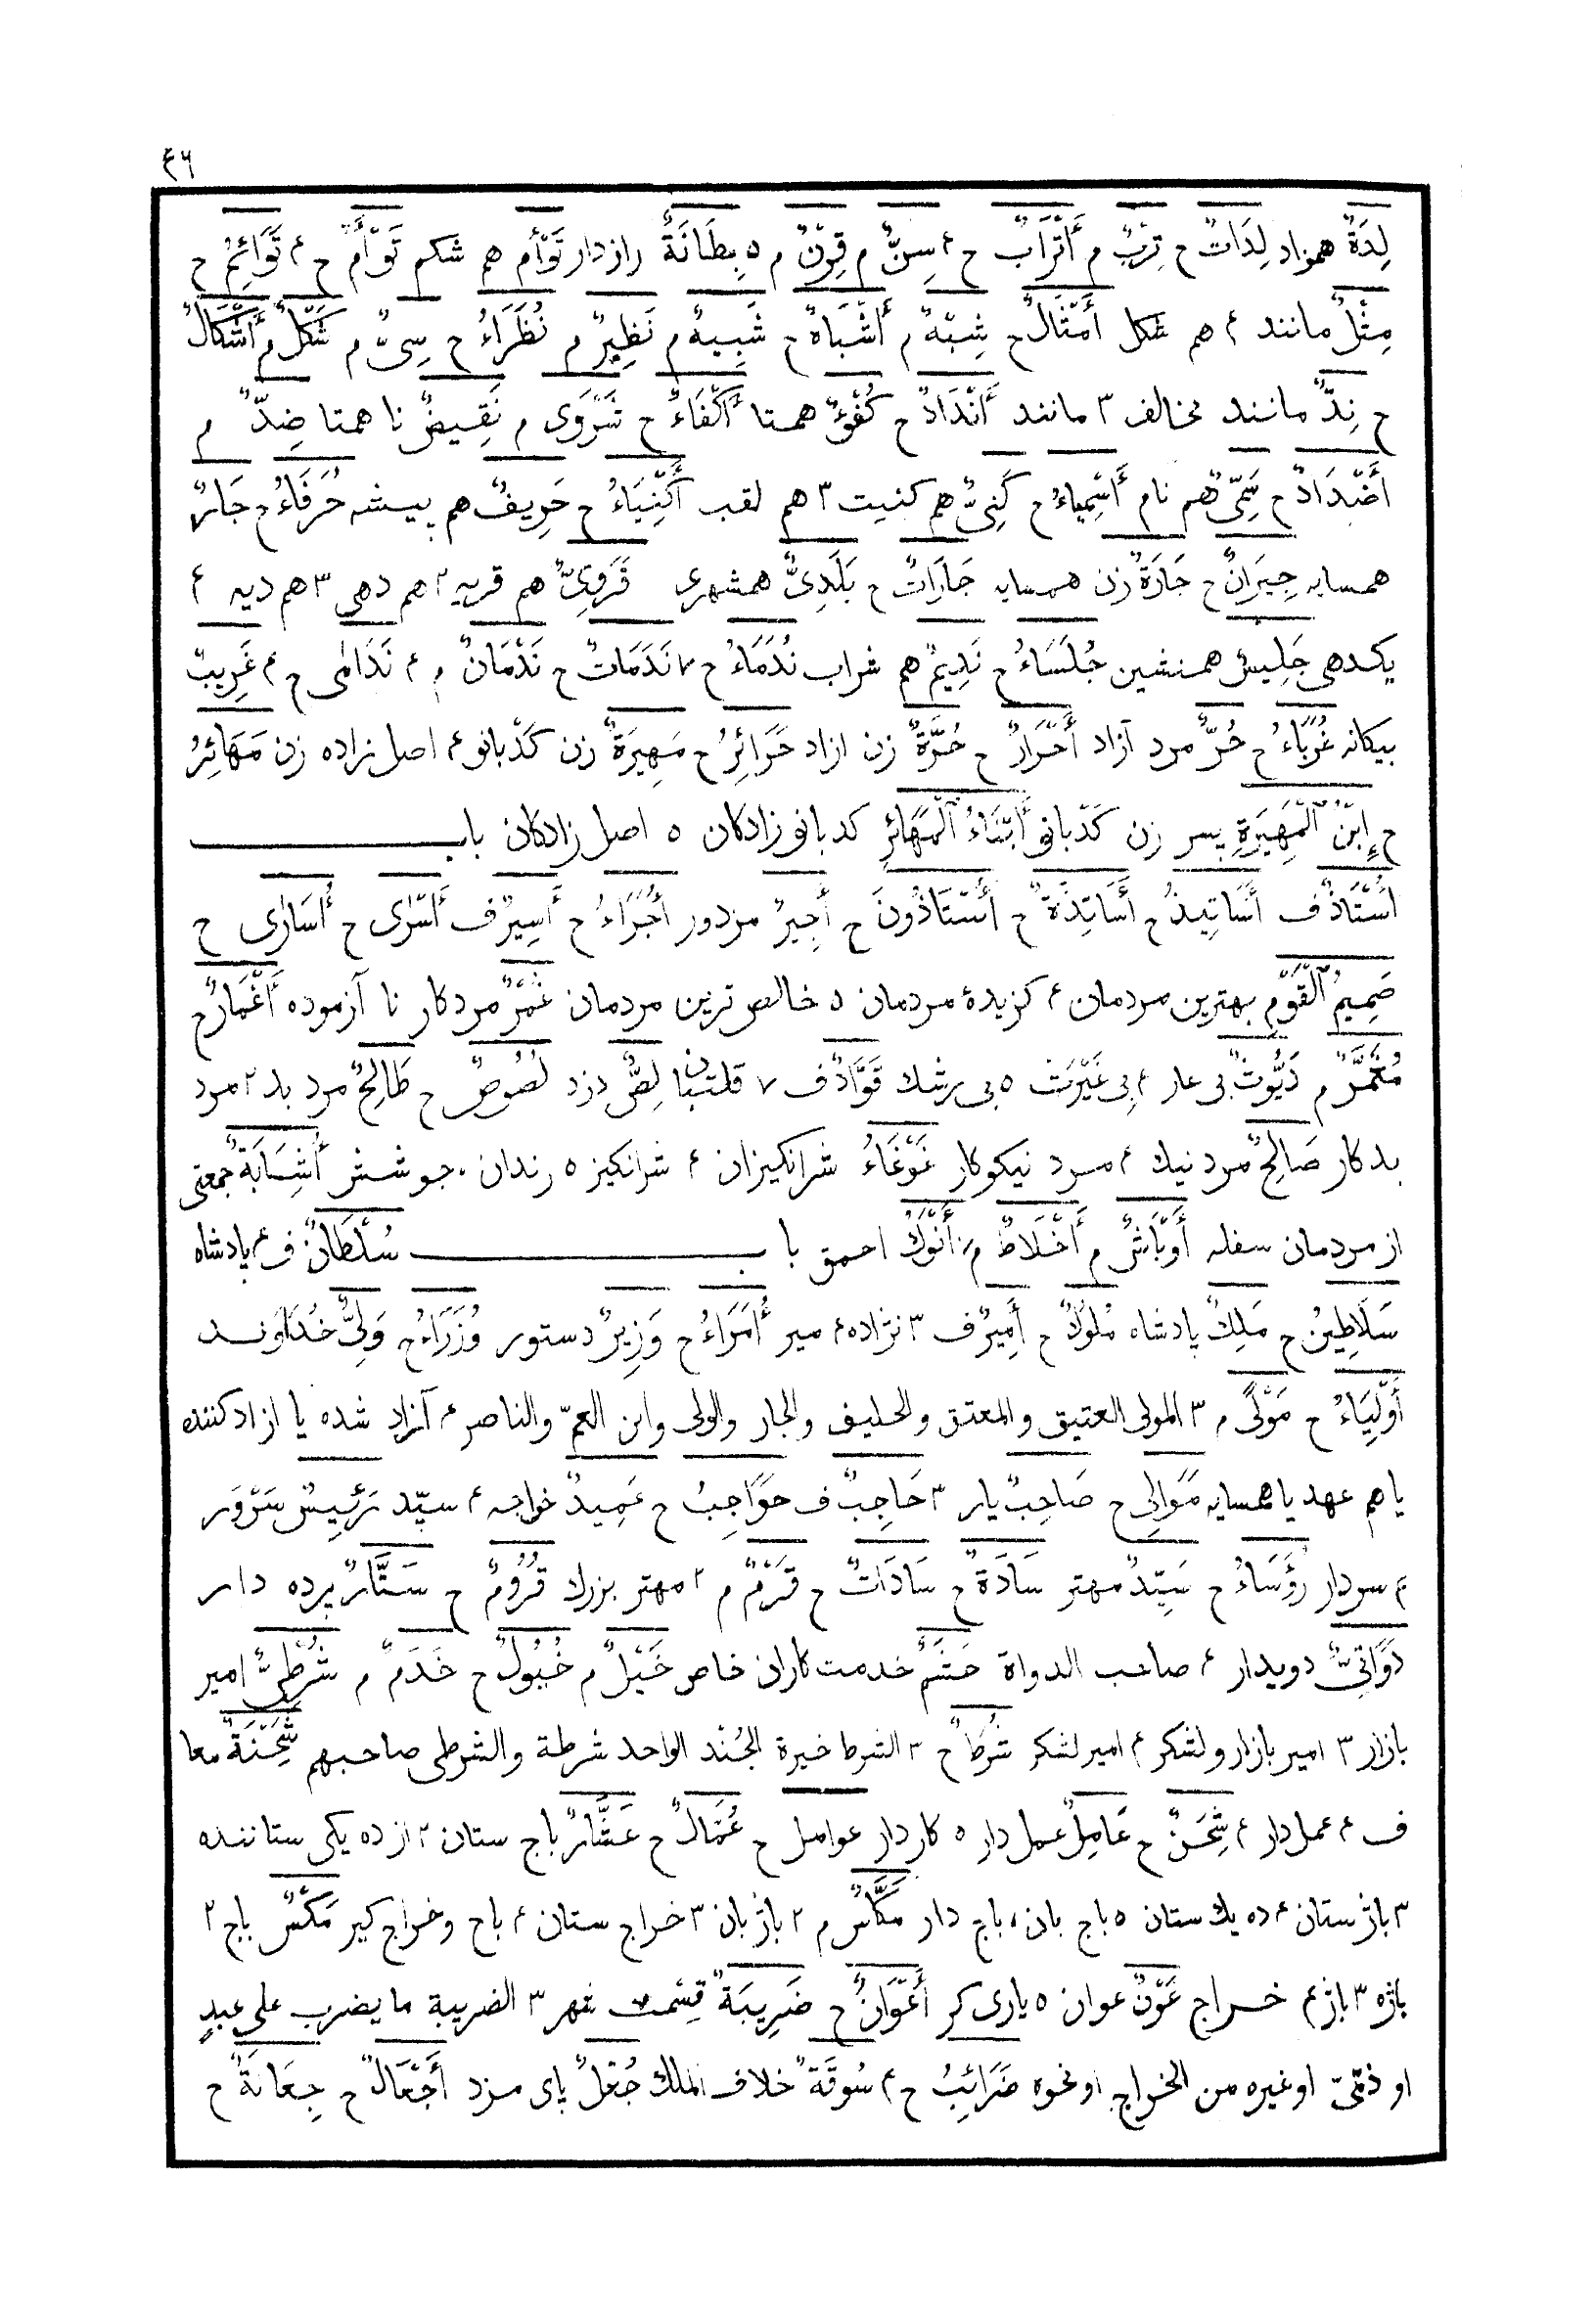 ۴۶
لِدَةٌ همزاد لِدَاتٌ ح تِرْبٌ م أَتْرَابٌ ح ۴ سِنٌّ م قِرْنٌ م ۵ بِطَانَةٌ رازدار تَوْأَمٌ هم شکم تَوْأَمٌ ح ۴ تَوَائِمُ ح
مِثْلٌ مانند ۴ هم شکل أَمْثَالٌ ح شِبْهٌ م أَشْبَاهٌ ح شَبِيهٌ م نَظِيرٌ م نُظَرَاءُ ح سِیٌّ م شَكْلٌ م أَشْكَالٌ
ح نِدٌّ مانند مخالف ۳ مانند أَنْدَادٌ ح كُفْوٌ همتا أَكْفَاءٌ ح شَرْوَى م نَقِيضٌ نا همتا ضِدٌّ م
أَضْدَادٌ ح سَمِیٌّ هم نام أَسْمِيَاءُ ح كَنِیٌّ هم کنیت ۳ هم لقب أَكْنِيَاءُ ح حَرِيفٌ هم پیشه حُرَفَاءُ ح جَارٌ
همسایه جِيرَانٌ ح جَارَةٌ زن همسایه جَارَاتٌ ح بَلَدِیٌّ همشهری قَرَوِیٌّ هم قریه ۲ هم دهی ۳ هم دیه ۴
یکدهی جَلِيسٌ همنشین جُلَسَاءُ ح نَدِيمٌ هم شراب نُدَمَاءُ ح ۷ نَدَمَاتٌ ح نَدْمَانٌ م ۴ نَدَامٰى ح ۴ غَرِيبٌ
بیکانه غُرَبَاءُ ح حُرٌّ مرد آزاد أَحْرَارٌ ح حُرَّةٌ زن ازاد حَرَائِرُ ح مَهِيرَةٌ زن کَدْبانو ۴ اصل زاده زن مَهَائِرُ
ح إِبْنُ الْمَهِيرَةِ پسر زن کَدْبانو أَبْنَاءُ الْمَهَائِرِ کدبانو زادکان ۵ اصل زادکان باب
أُسْتَاذٌ ف أَسَاتِيذُ ح أَسَاتِذَةٌ ح أُسْتَاذُونَ ح أَجِيرٌ مزدور أُجَرَاءُ ح أَسِيرٌ ف أَسْرَى ح أُسَارٰى ح
صَمِيمُ الْقَوْمِ بهترین مردمان ۴ کزیدهٔ مردمان ۵ خالص ترین مردمان غُمْرٌ مرد کار نا آزموده أَغْمَارٌ ح
مُغَمَّرٌ م دَيُّوثٌ بی عار ۴ بی غَیْرَت ۵ بی رشك قَوَّادٌ ف ۷ قلتبان لِصٌّ دزد لُصُوصٌ ح طَالِحٌ مرد بد ۲ مرد
بدکار صَالِحٌ مرد نیك ۴ مرد نیکوکار غَوْغَاءُ شرانکیزان ۴ شرانکیز ۵ رندان ۰ جوشش أُشَابَةٌ جمعتی
از مردمان سفله أَوْبَاشٌ م أَخْلَاطٌ م أَنْوَكُ احمق باب سُلْطَانٌ ف ۴ پادشاه
سَلَاطِينُ ح مَلِكٌ پادشاه مُلُوكٌ ح أَمِيرٌ ف ۳ نژاده ۴ میر أُمَرَاءُ ح وَزِيرٌ دستور وُزَرَاءُ ح وَلِیٌّ خُدَاوند
أَوْلِيَاءُ ح مَوْلًى م ۳ المولى العتيق والمعتق والحليف والجار والولى وابن العمّ والناصر ۴ آزاد شده یا ازاد کننده
یا هم عهد یا همسایه مَوَالِي ح صَاحِبٌ یار ۳ حَاجِبٌ ف حَوَاجِبُ ح عَمِيدٌ خواجه ۴ سیّد رَئِيسٌ سَرْوَر
۴ سردار رُؤَسَاءُ ح سَيِّدٌ مهتر سَادَةٌ ح سَادَاتٌ ح قَرْمٌ م ۲ مهتر بزرك قُرُومٌ ح سَتَّارٌ پرده دار
دَوَاتِیٌّ دویدار ۴ صاحب الدواة حَشَمٌ خدمت کاران خاص خَيْلٌ م خُيُولٌ ح خَدَمٌ م شُرْطِیٌّ امیر
بازار ۳ امیر بازار و لشکر ۴ امیر لشکر شُرَطٌ ح ۳ الشرط خيرة الجُند الواحد شرطة والشرطى صاحبهم شِحْنَةٌ معا
ف ۴ عمل دار ۴ شِحَنٌ ح عَامِلٌ عمل دار ۵ کاردار عوامل ح عُمَّالٌ ح عَشَّارٌ باج ستان ۲ از ده یکی ستاننده
۳ باژ ستان ۴ ده یك ستان ۵ باج بان ۰ باج دار مَكَّاسٌ م ۲ باژبان ۳ خراج ستان ۴ باج وخراج کیر مَكْسٌ باج ۲
باژه ۳ باژ ۴ خراج عَوْنٌ عوان ۵ یاری کر أَعْوَانٌ ح ضَرِيبَةٌ قِسْمت شهر ۳ الضريبة ما يضرب على عبدٍ
او ذمّىّ او غيره من الخراج او نحوه ضَرَائِبُ ح ۴ سُوقَةٌ خلاف الملك جُعْلٌ پای مزد أَجْعَالٌ ح جِعَالَةٌ ح